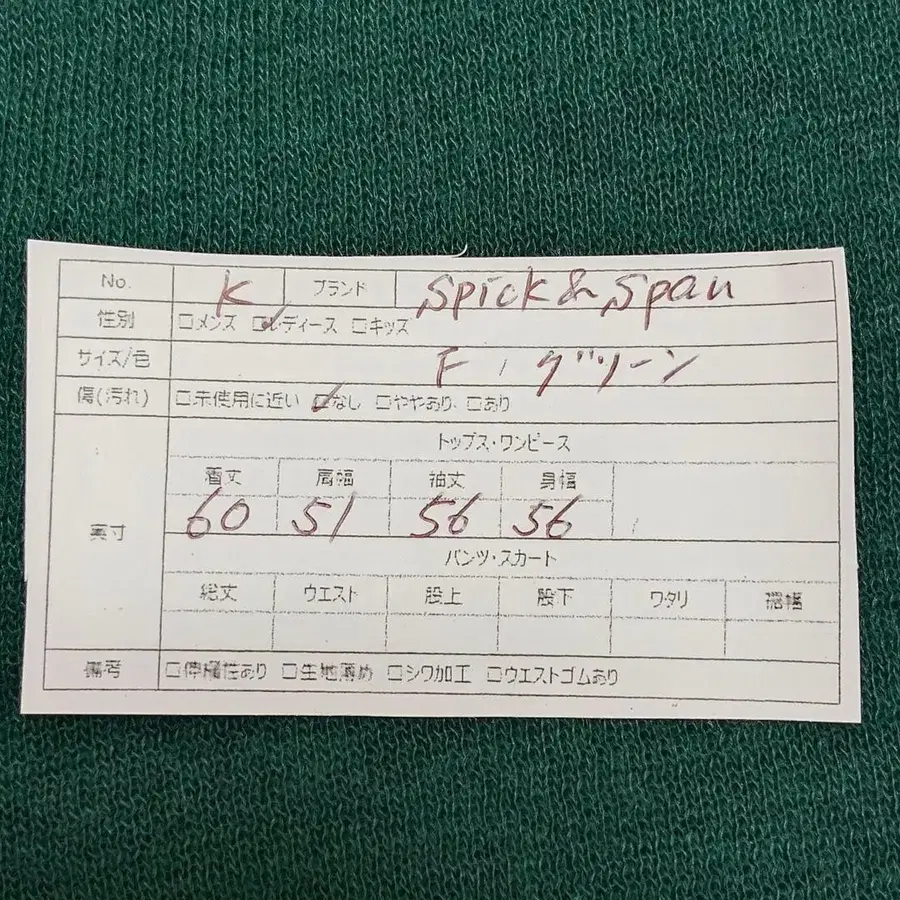 No. K ブランド Spick & Span
性別 □メンズ ☑レディース □キッズ
サイズ/色 F / グリーン
傷(汚れ) □未使用に近い ☑なし □ややあり、□あり
トップス・ワンピース
着丈 肩幅 袖丈 身幅
実寸 60 51 56 56
パンツ・スカート
総丈 ウエスト 股上 股下 ワタリ 裾幅
備考 □伸縮性あり □生地薄め □シワ加工 □ウエストゴムあり